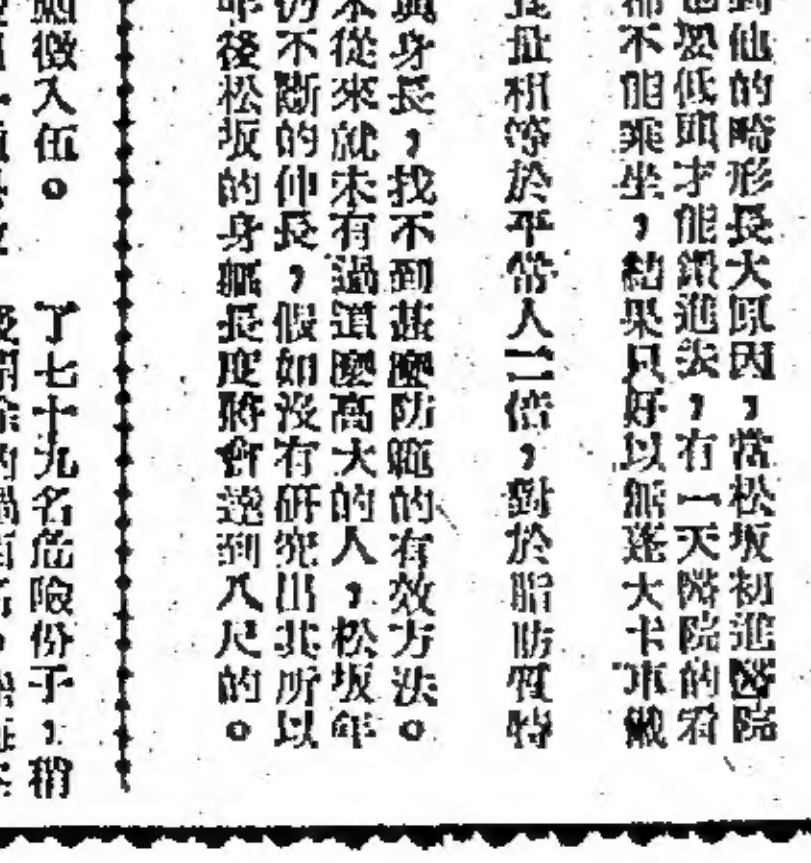 到他的畸形長大原因，當松坂初進醫院
也要低頭才能鑽進去，有一天醫院的
都不能乘坐，結果只好以無蓬大卡車
相等於平常人二倍，對於脂肪質特
與身長，找不到甚麼防範的有效方法。
本從來就未有過這麼高大的人，松坂年
仍不斷的伸長，假如沒有研究出其所以
年後松坂的身軀長度將會達到八尺的。
徵入伍。
了七十九名危險份子，稍